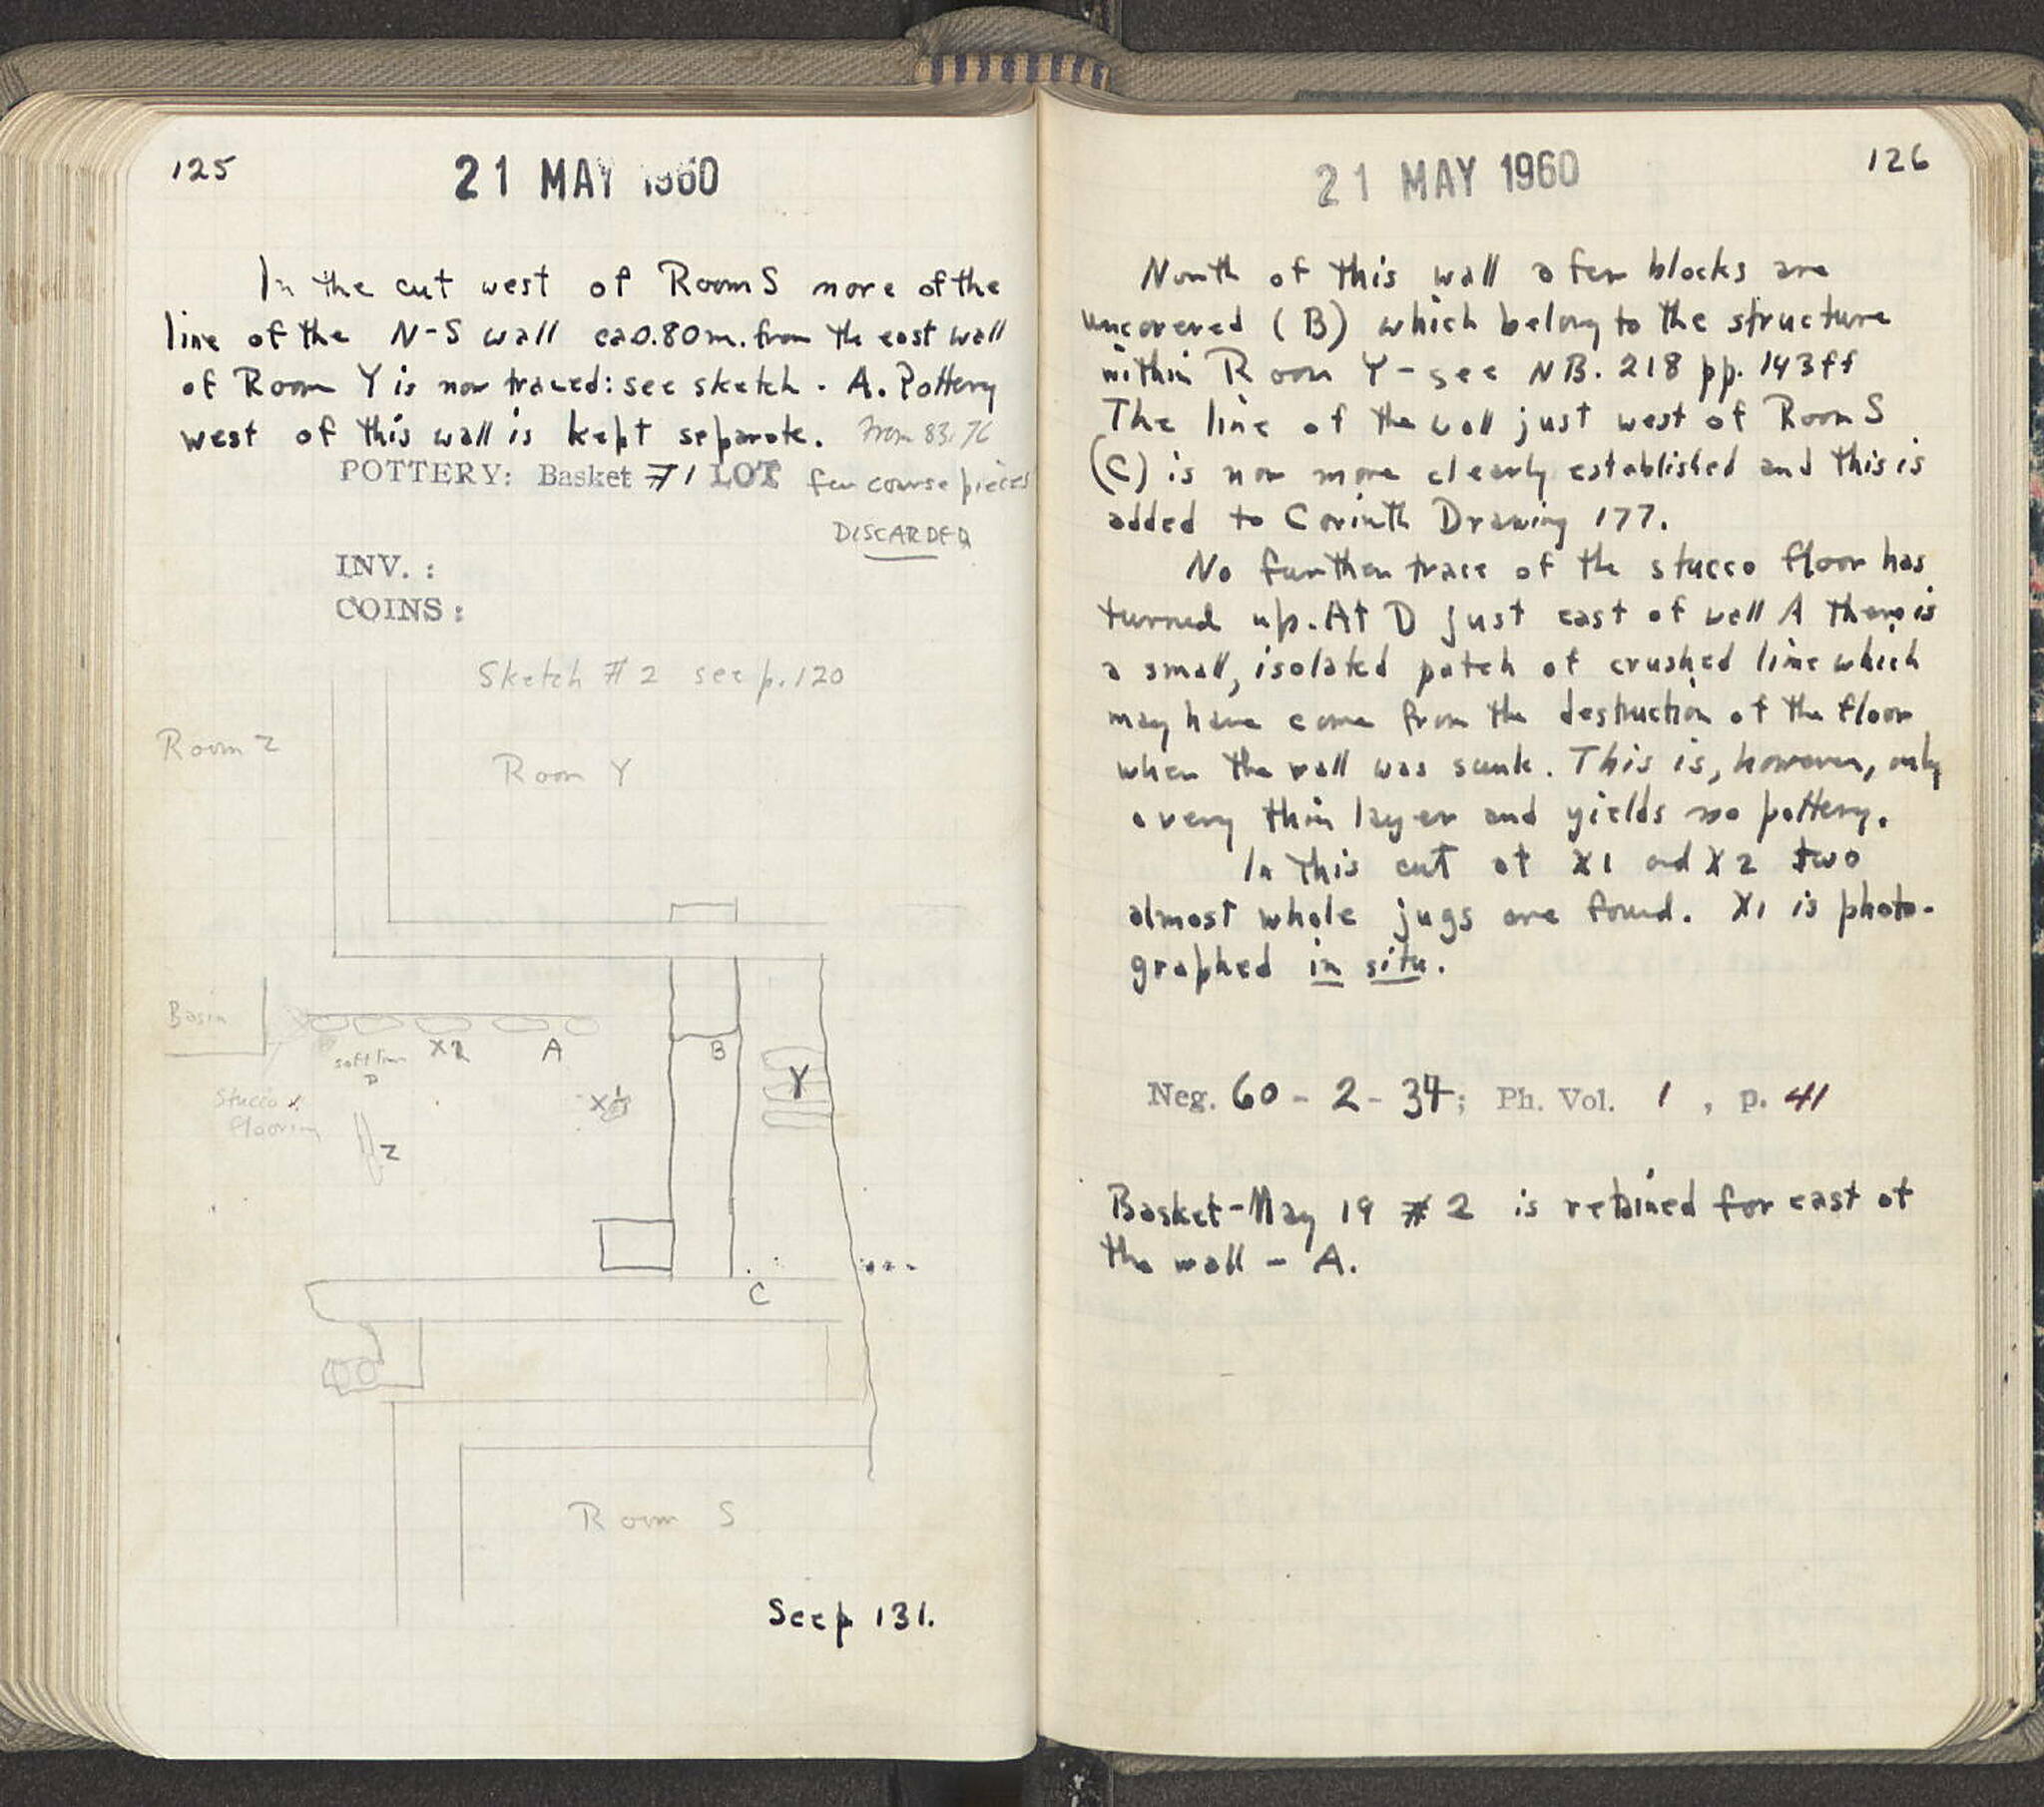 125
21 MAY 1960
In the cut west of Room S more of the
line of the N-S wall ca 0.80 m. from the east wall
of Room Y is now traced: see sketch - A. Pottery
west of this wall is kept separate. From 83.76
POTTERY: Basket #1 LOT few course pieces
DISCARDED
INV. :
COINS :
Sketch #2 see p. 120
Room Z
Room Y
Basin
soft lime
D
X2
A
B
Y
Stucco x
flooring
X1
Z
C
Room S
See p 131.
126
21 MAY 1960
North of this wall a few blocks are
uncovered (B) which belong to the structure
within Room Y - see NB. 218 pp. 143ff
The line of the wall just west of Room S
(C) is now more clearly established and this is
added to Corinth Drawing 177.
No further trace of the stucco floor has
turned up. At D just east of wall A there is
a small, isolated patch of crushed lime which
may have come from the destruction of the floor
when the wall was sunk. This is, however, only
a very thin layer and yields no pottery.
In this cut at X1 and X2 two
almost whole jugs are found. X1 is photo-
graphed in situ.
Neg. 60 - 2 - 34; Ph. Vol. 1 , p. 41
Basket - May 19 #2 is retained for east of
the wall - A.